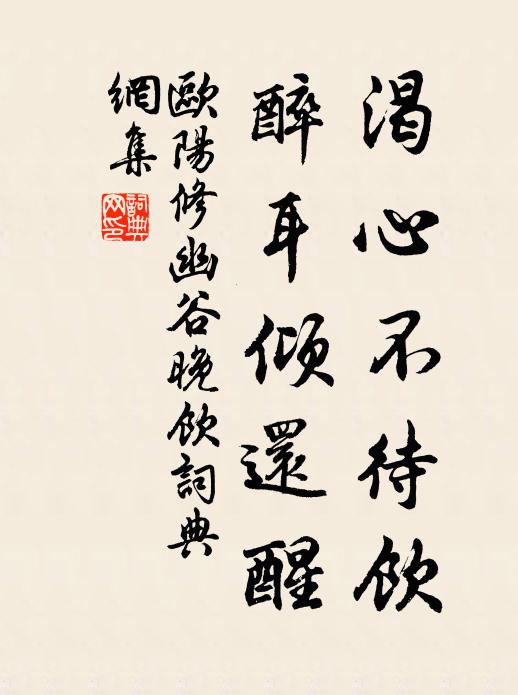 渴心不待飲
醉耳傾還醒
歐陽修幽谷晚飲詞典
網集
詞典
网印